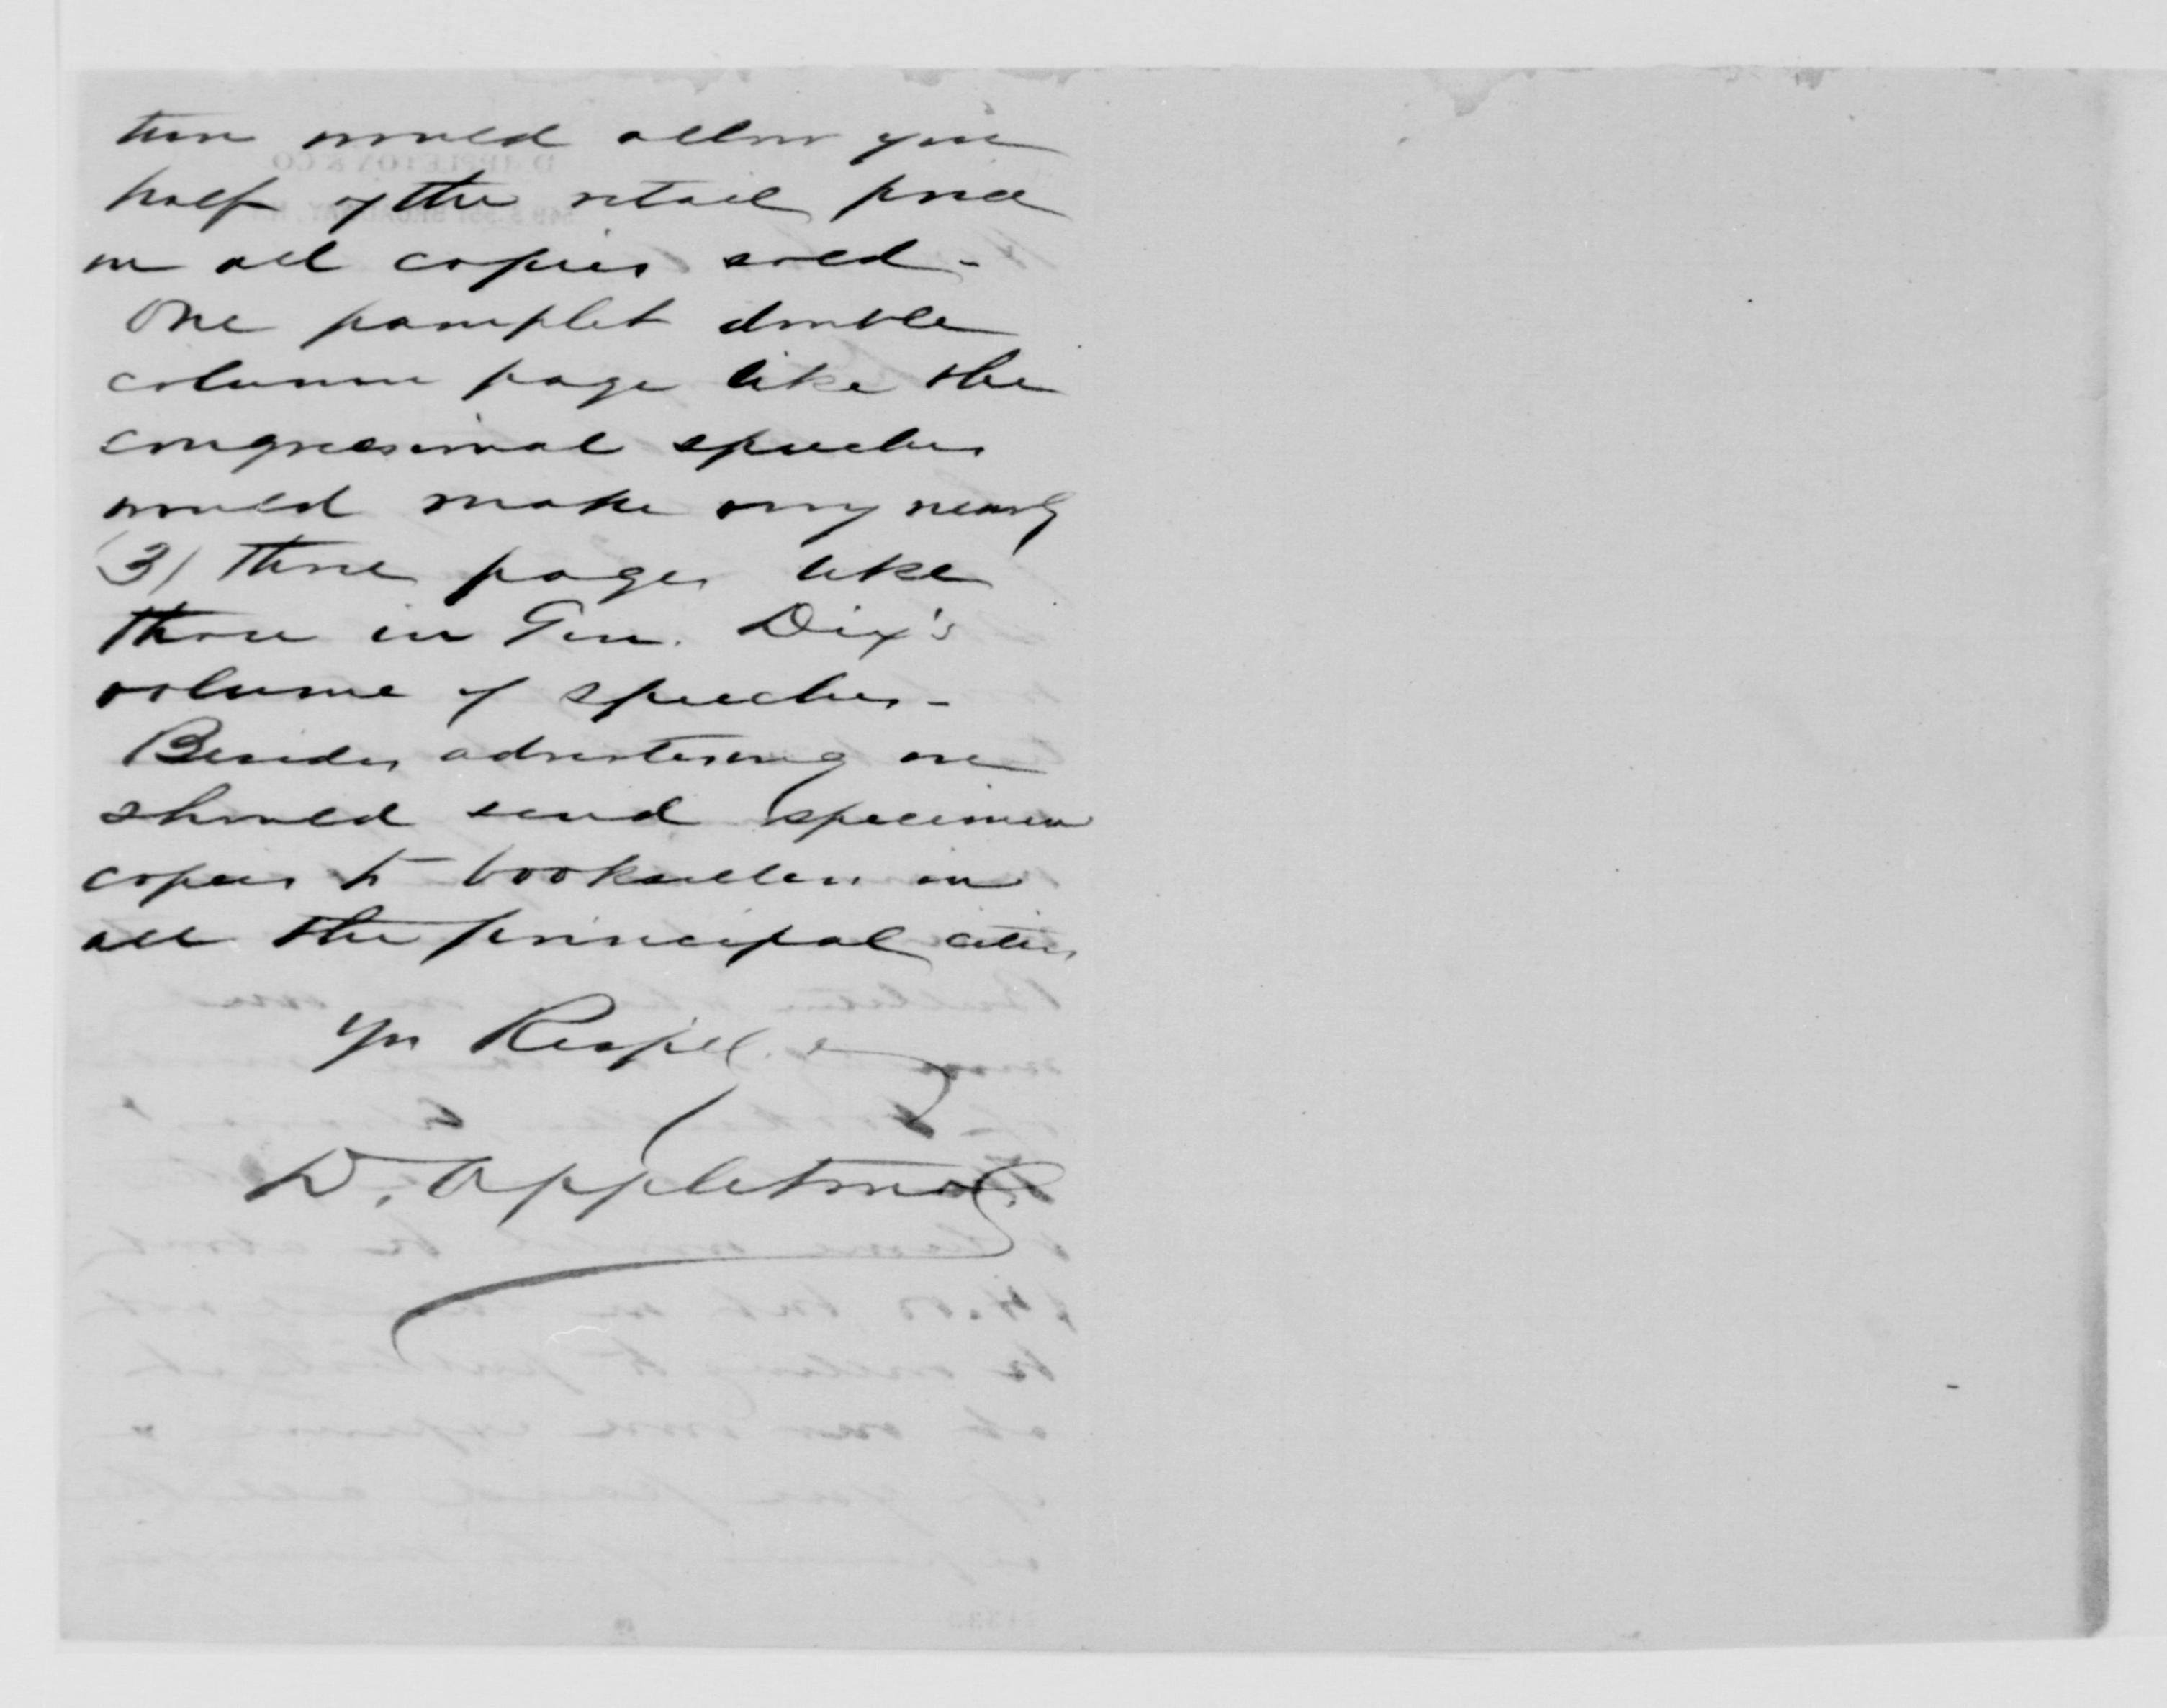 then would allow you
half of the retail price
on all copies sold -
One pamplet double
column page like the
congressional speeches
would make very nearly
(3) three pages like
those in Gen. Dix's
volume of speeches -
Besides advertising we
should send specimen
copies to booksellers in
all the principal cities
Yrs Respec.
D. Appleton & Co.